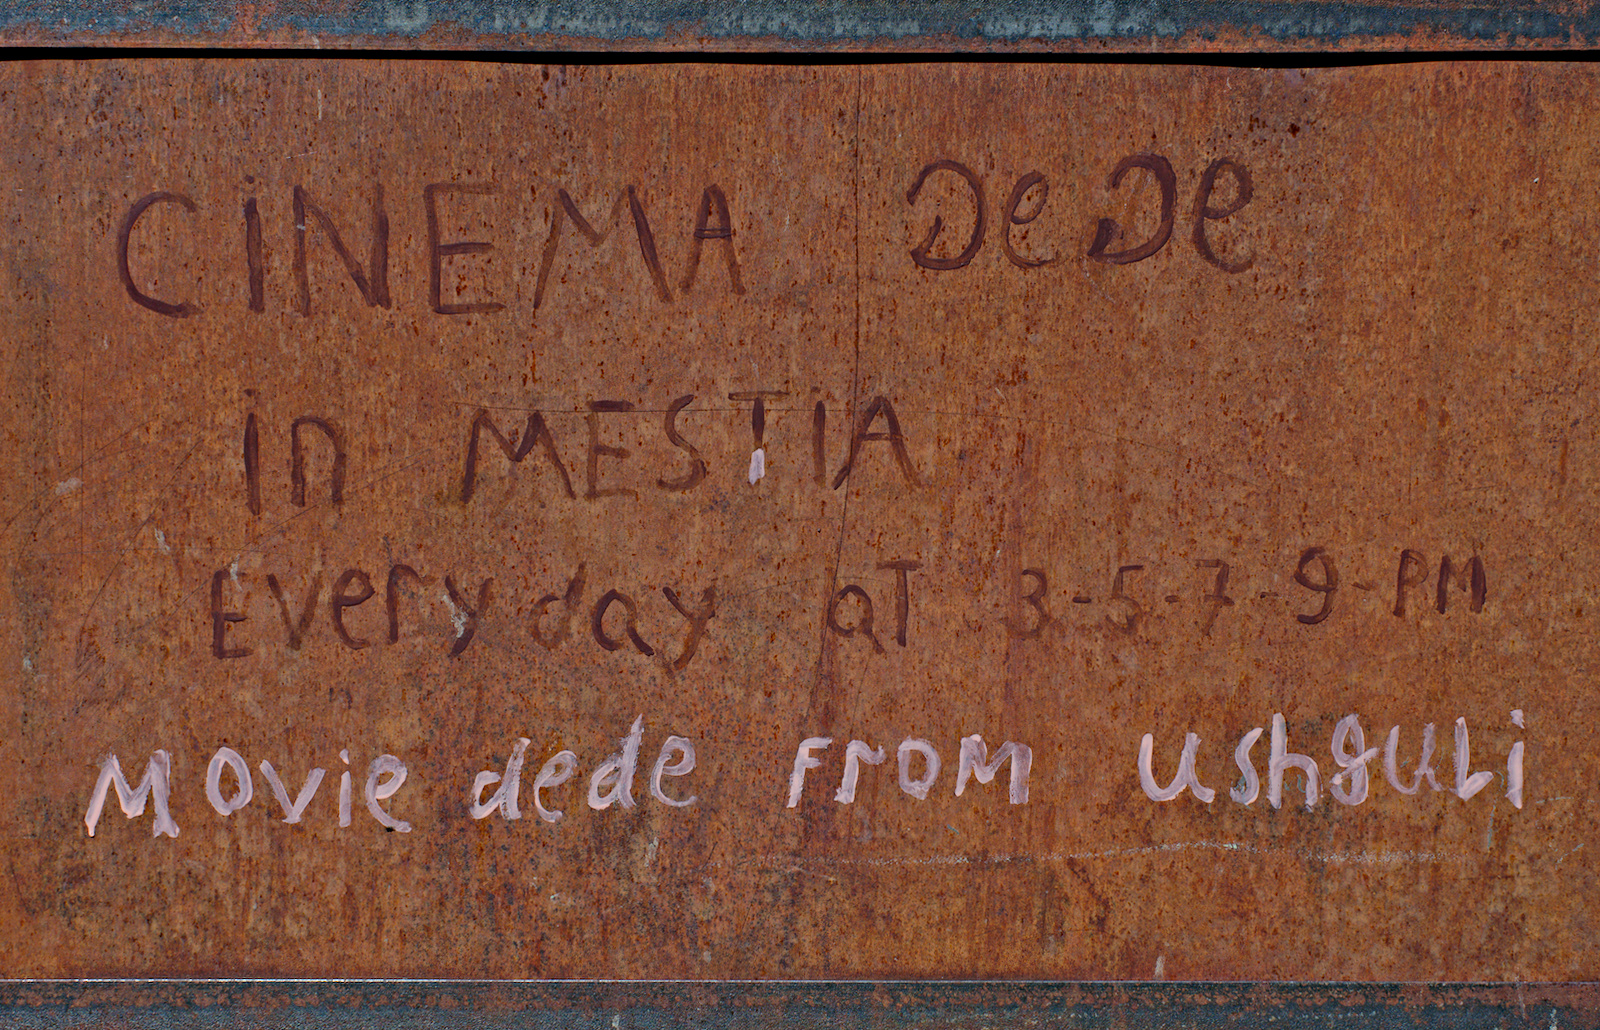 CiNEMA DeDe
in MESTiA
Every day aT 3-5-7-9-PM
Movie dede From ushguLi